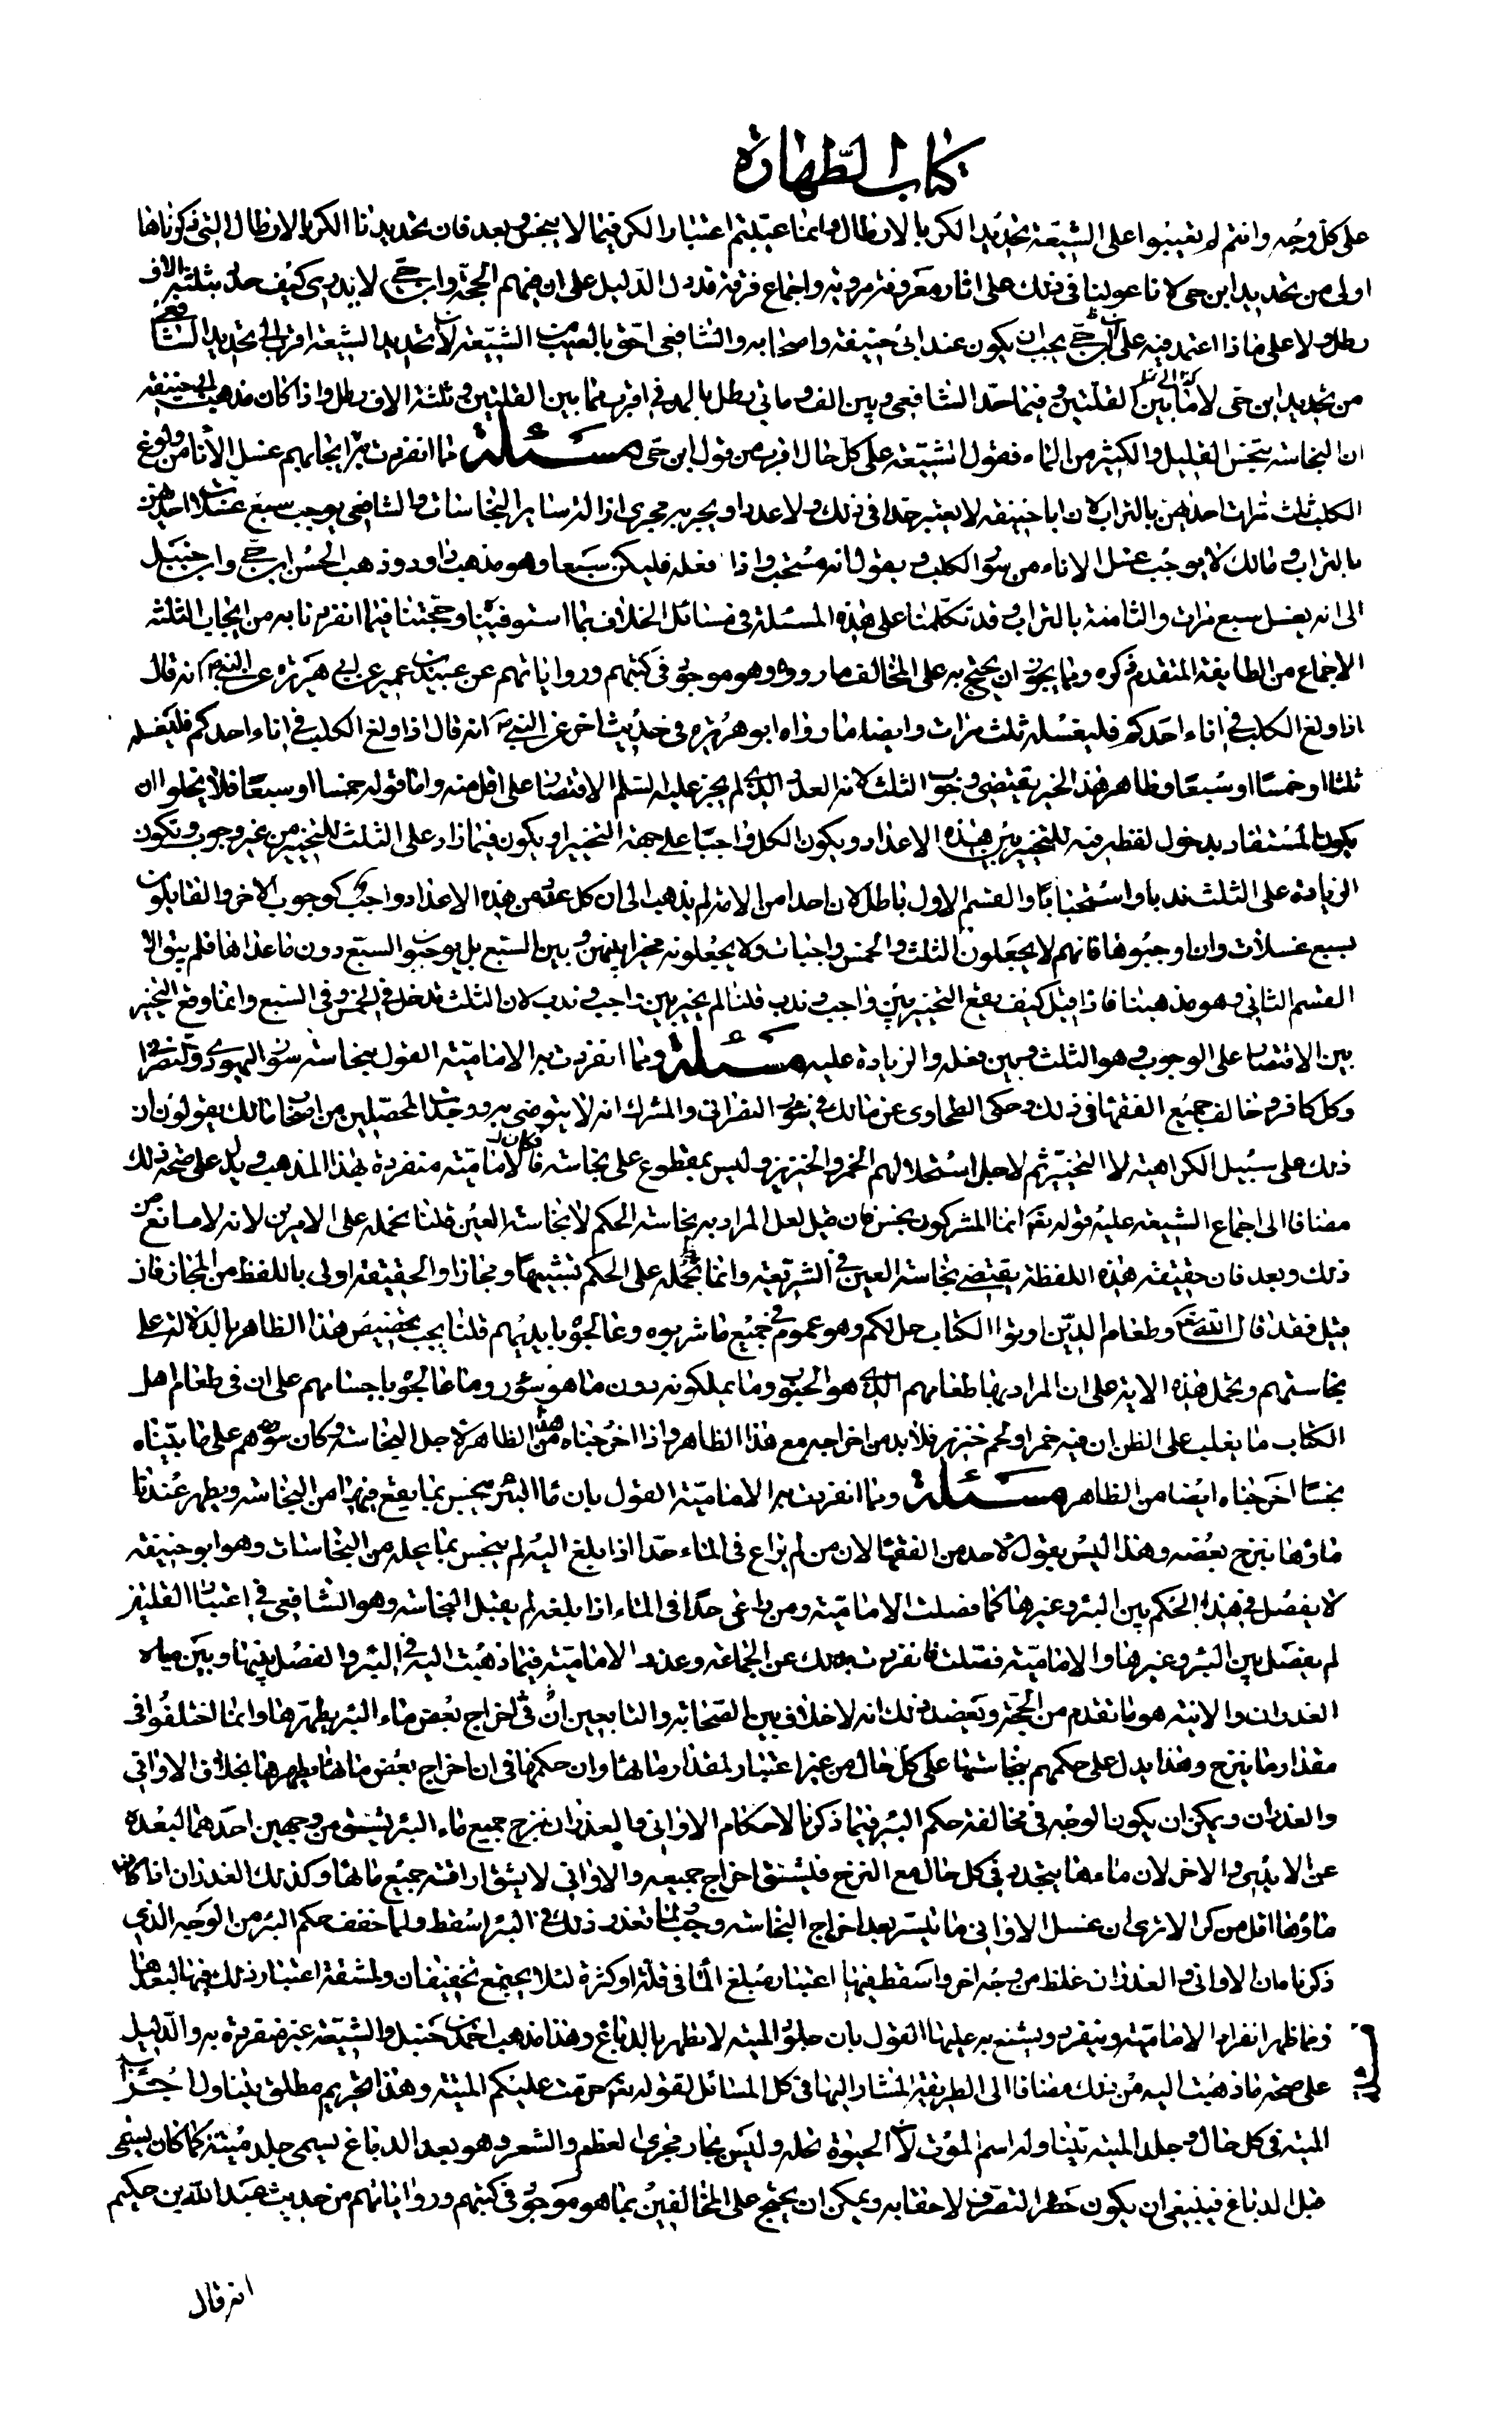 كتاب الطهارة
على كل وجه وانتم لم تعيبوا على الشيعة تحديد الكر بالارطال وانما عبتم اعتبار الكر فيما لا ينجس وبعد فان تحديدنا الكر بالارطال التي ذكرناها
اولى من تحديد ابن حى لانا عولنا في ذلك على اثار معروفة مروية واجماع فرقة قد دل الدليل على ان فيهم الحجة وابن حي لا يدرى كيف حده بثلثة الاف
رطل ولا على ماذا اعتمد فيه على ان ابن حي يجب ان يكون عند ابى حنيفة واصحابه والشافعي احق بالعيب من الشيعة لان تحديد الشيعة اقرب الى تحديد الشافعي
من تحديد ابن حى لان ما بين القلتين وفيما حد الشافعي وبين الف وماتي رطل بالمدني اقرب مما بين القلتين وثلثة الاف رطل واذا كان مذهب ابى حنيفة
ان النجاسة تنجس القليل والكثير من الماء فقول الشيعة على كل حال اقرب من قول ابن حى مسئلة مما انفردت به ايجابهم غسل الاناء من ولوغ
الكلب ثلث مرات احديهن بالتراب لان ابا حنيفة لا يعتبر حدا في ذلك ولا عددا ويجريه مجرى ازالة سائر النجاسات والشافعي يوجب سبع غسلات احديهن
بالتراب ومالك لا يوجب غسل الاناء من سؤر الكلب ويقول انه مستحب واذا فعله فليكن سبعا وهو مذهب داود وذهب الحسن ابن حي وابن حنبل
الى انه يغسل سبع مرات والثامنة بالتراب وقد تكلمنا على هذه المسئلة في مسائل الخلاف بما استوفيناه وحجتنا فيما انفردنا به من ايجاب الثلثة
الاجماع من الطايفة المتقدم ذكره ومما يجوز ان يحتج به على المخالف ما رووه وهو موجود في كتبهم ورواياتهم عن عبيد بن عمير عن ابى هريرة عن النبي ص انه قال
اذا ولغ الكلب في اناء احدكم فليغسله ثلث مرات وايضا ما رواه ابو هريرة في حديث اخر عن النبي ص انه قال اذا ولغ الكلب في اناء احدكم فليغسله
ثلثا او خمسا او سبعا وظاهر هذا الخبر يقتضى وجوب الثلث لانه العدد الذى لم يجز عليه السلم الاقتصار على اقل منه واما قوله خمسا او سبعا فلا يخلو ان
يكون المستفاد بدخول لفظه فيه للتخيير بين هذه الاعداد ويكون الكل واجبا على جهة التخيير او يكون فيما زاد على الثلث للتخيير من غير وجوب وتكون
الزيادة على الثلث ندبا واستحبابا والقسم الاول باطل لان احدا من الامة لم يذهب الى ان كل عدد من هذه الاعداد واجب كوجوب الاخر والقايلون
بسبع غسلات وان اوجبوها فانهم لا يجعلون الثلث والخمس واجبات ولا يجعلونه مخيرا بينهن وبين السبع بل يوجبون السبع دون ما عداها فلم يبق الا
القسم الثاني وهو مذهبنا فاذا قيل كيف يقع التخيير بين واجب وندب قلنا لم يخير بين واجب وندب لان الثلث تدخل في الخمس وفي السبع وانما وقع التخيير
بين الاقتصار على الوجوب وهو الثلث وبين فعله والزيادة عليه مسئلة ومما انفردت به الامامية القول بنجاسة سؤر اليهودي والنصراني
وكل كافر وخالف جميع الفقهاء في ذلك وحكى الطحاوى عن مالك في سؤر النصراني والمشرك انه لا يتوضى به ووجدت المحصلين من اصحاب مالك يقولون ان
ذلك على سبيل الكراهية لا التحريم لاجل استحلالهم الخمر والخنزير وليس بمقطوع على نجاسته فكان الامامية منفردة بهذا المذهب ويدل على صحة ذلك
مضافا الى اجماع الشيعة عليه قوله تعالى انما المشركون نجس فان قيل لعل المراد به نجاسة الحكم لا نجاسة العين قلنا نحمله على الامرين لانه لا مانع من
ذلك وبعد فان حقيقة هذه اللفظة يقتضى نجاسة العين في الشريعة وانما تحمله على الحكم تشبيها ومجازا والحقيقة اولى باللفظ من المجاز فان
قيل فقد قال الله تعالى وطعام الذين اوتوا الكتاب حل لكم وهو عموم في جميع ما شربوه وعالجوه بايديهم قلنا يجب تخصيص هذا الظاهر بالدلالة على
نجاستهم ونحمل هذه الاية على ان المراد بها طعامهم الذى هو الحبوب وما يملكونه دون ما هو سؤر وما عالجوه باجسامهم على ان في طعام اهل
الكتاب ما يغلب على الظن ان فيه خمرا ولحم خنزير فلا بد من اخراجه مع هذا الظاهر واذا اخرجناه من هذا الظاهر لاجل النجاسة وكان سؤرهم على ما بيناه
نجسا اخرجناه ايضا من الظاهر مسئلة ومما انفردت به الامامية القول بان ماء البئر ينجس بما يقع فيها من النجاسة ويطهر عندنا
ماؤها بنزح بعضه وهذا ليس بقول لاحد من الفقهاء لان من لم يراع في الماء حدا اذا بلغ اليه لم ينجس بما يحله من النجاسات وهو ابو حنيفة
لا يفصل في هذا الحكم بين البئر وغيرها كما فصلت الامامية ومن راعى حدا في الماء اذا بلغه لم يقبل النجاسة وهو الشافعي في اعتباره القلتين
لم يفصل بين البئر وغيرها والامامية فصلت فانفردت بذلك عن الجماعة وعذر الامامية فيما ذهبت اليه في البئر والفصل بينها وبين مياه
الغدران والانية هو ما تقدم من الحجة ويعضد ذلك انه لا خلاف بين الصحابة والتابعين ان في اخراج بعض ماء البئر يطهرها وانما اختلفوا في
مقدار ما ينزح وهذا يدل على حكمهم بنجاستها على كل حال من غير اعتبار لمقدار مائها وان حكمها في ان اخراج بعض مائها يطهرها بخلاف الاواني
والغدران ويمكن ان يكون الوجه في مخالفة حكم البئر فيما ذكرنا لاحكام الاواني والغدران نزح جميع ماء البئر يشق من وجهين احدهما لبعده
عن الايدي والاخر لان ماءها يتجدد في كل حال مع النزح فليشق اخراج جميعه والاواني لا يشق اراقة جميع مائها وكذلك الغدران اذا كان
ماؤها اقل من كر الا ترى ان غسل الاواني ما تيسر بعد اخراج النجاسة وجب ولما تعذر ذلك في البئر اسقط ولما خفف حكم البئر من الوجه الذي
ذكرناه ان الاواني والغدران غلظ من وجه اخر واسقط فيها اعتبار مبلغ الماء في قلة او كثرة لئلا يجتمع تخفيفان ولمشقة اعتبار ذلك فيها لبعدها
ومما ظهر انفراد الامامية وينفرد ويشنع به عليها القول بان جلود الميتة لا تطهر بالدباغ وهذا مذهب احمد بن حنبل والشيعة غير منفردة به والدليل
على صحة ما ذهبت اليه من ذلك مضافا الى الطريقة المشار اليها في كل المسائل لقوله تعالى حرمت عليكم الميتة وهذا تحريم مطلق يتناول اجزاء
الميتة في كل حال وجلد الميتة يتناوله اسم الموت لان الحيوة تحله وليس بجار مجرى العظم والشعر وهو بعد الدباغ يسمى جلد ميتة كما كان يسمى
قبل الدباغ فينبغي ان يكون حظر التصرف لاحقا به ويمكن ان يحتج على المخالفين بما هو موجود في كتبهم ورواياتهم من حديث عبد الله بن حكيم
انه قال